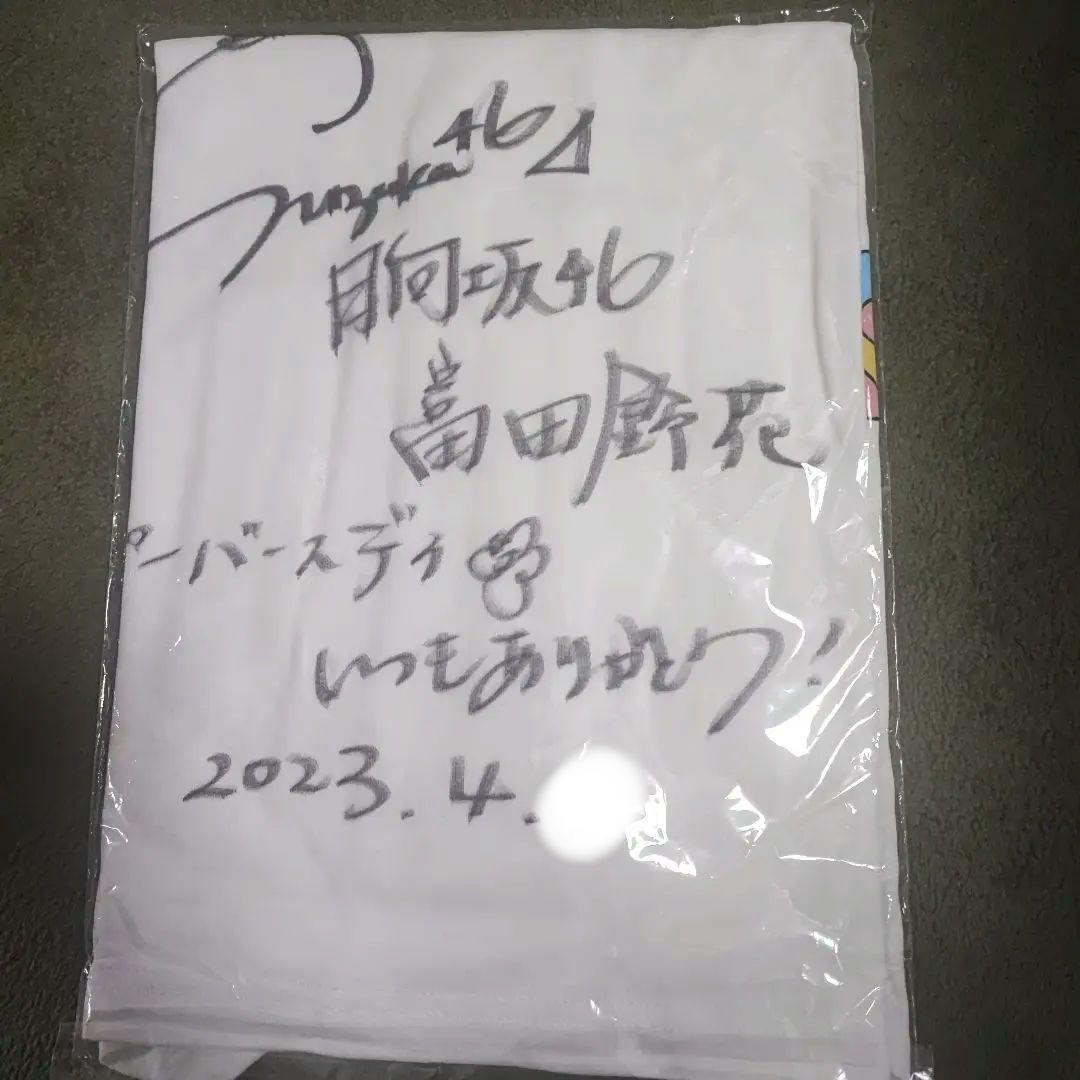 46
日向坂46
富田鈴花
ーバースディ
いつもありがとう!
2023.4.